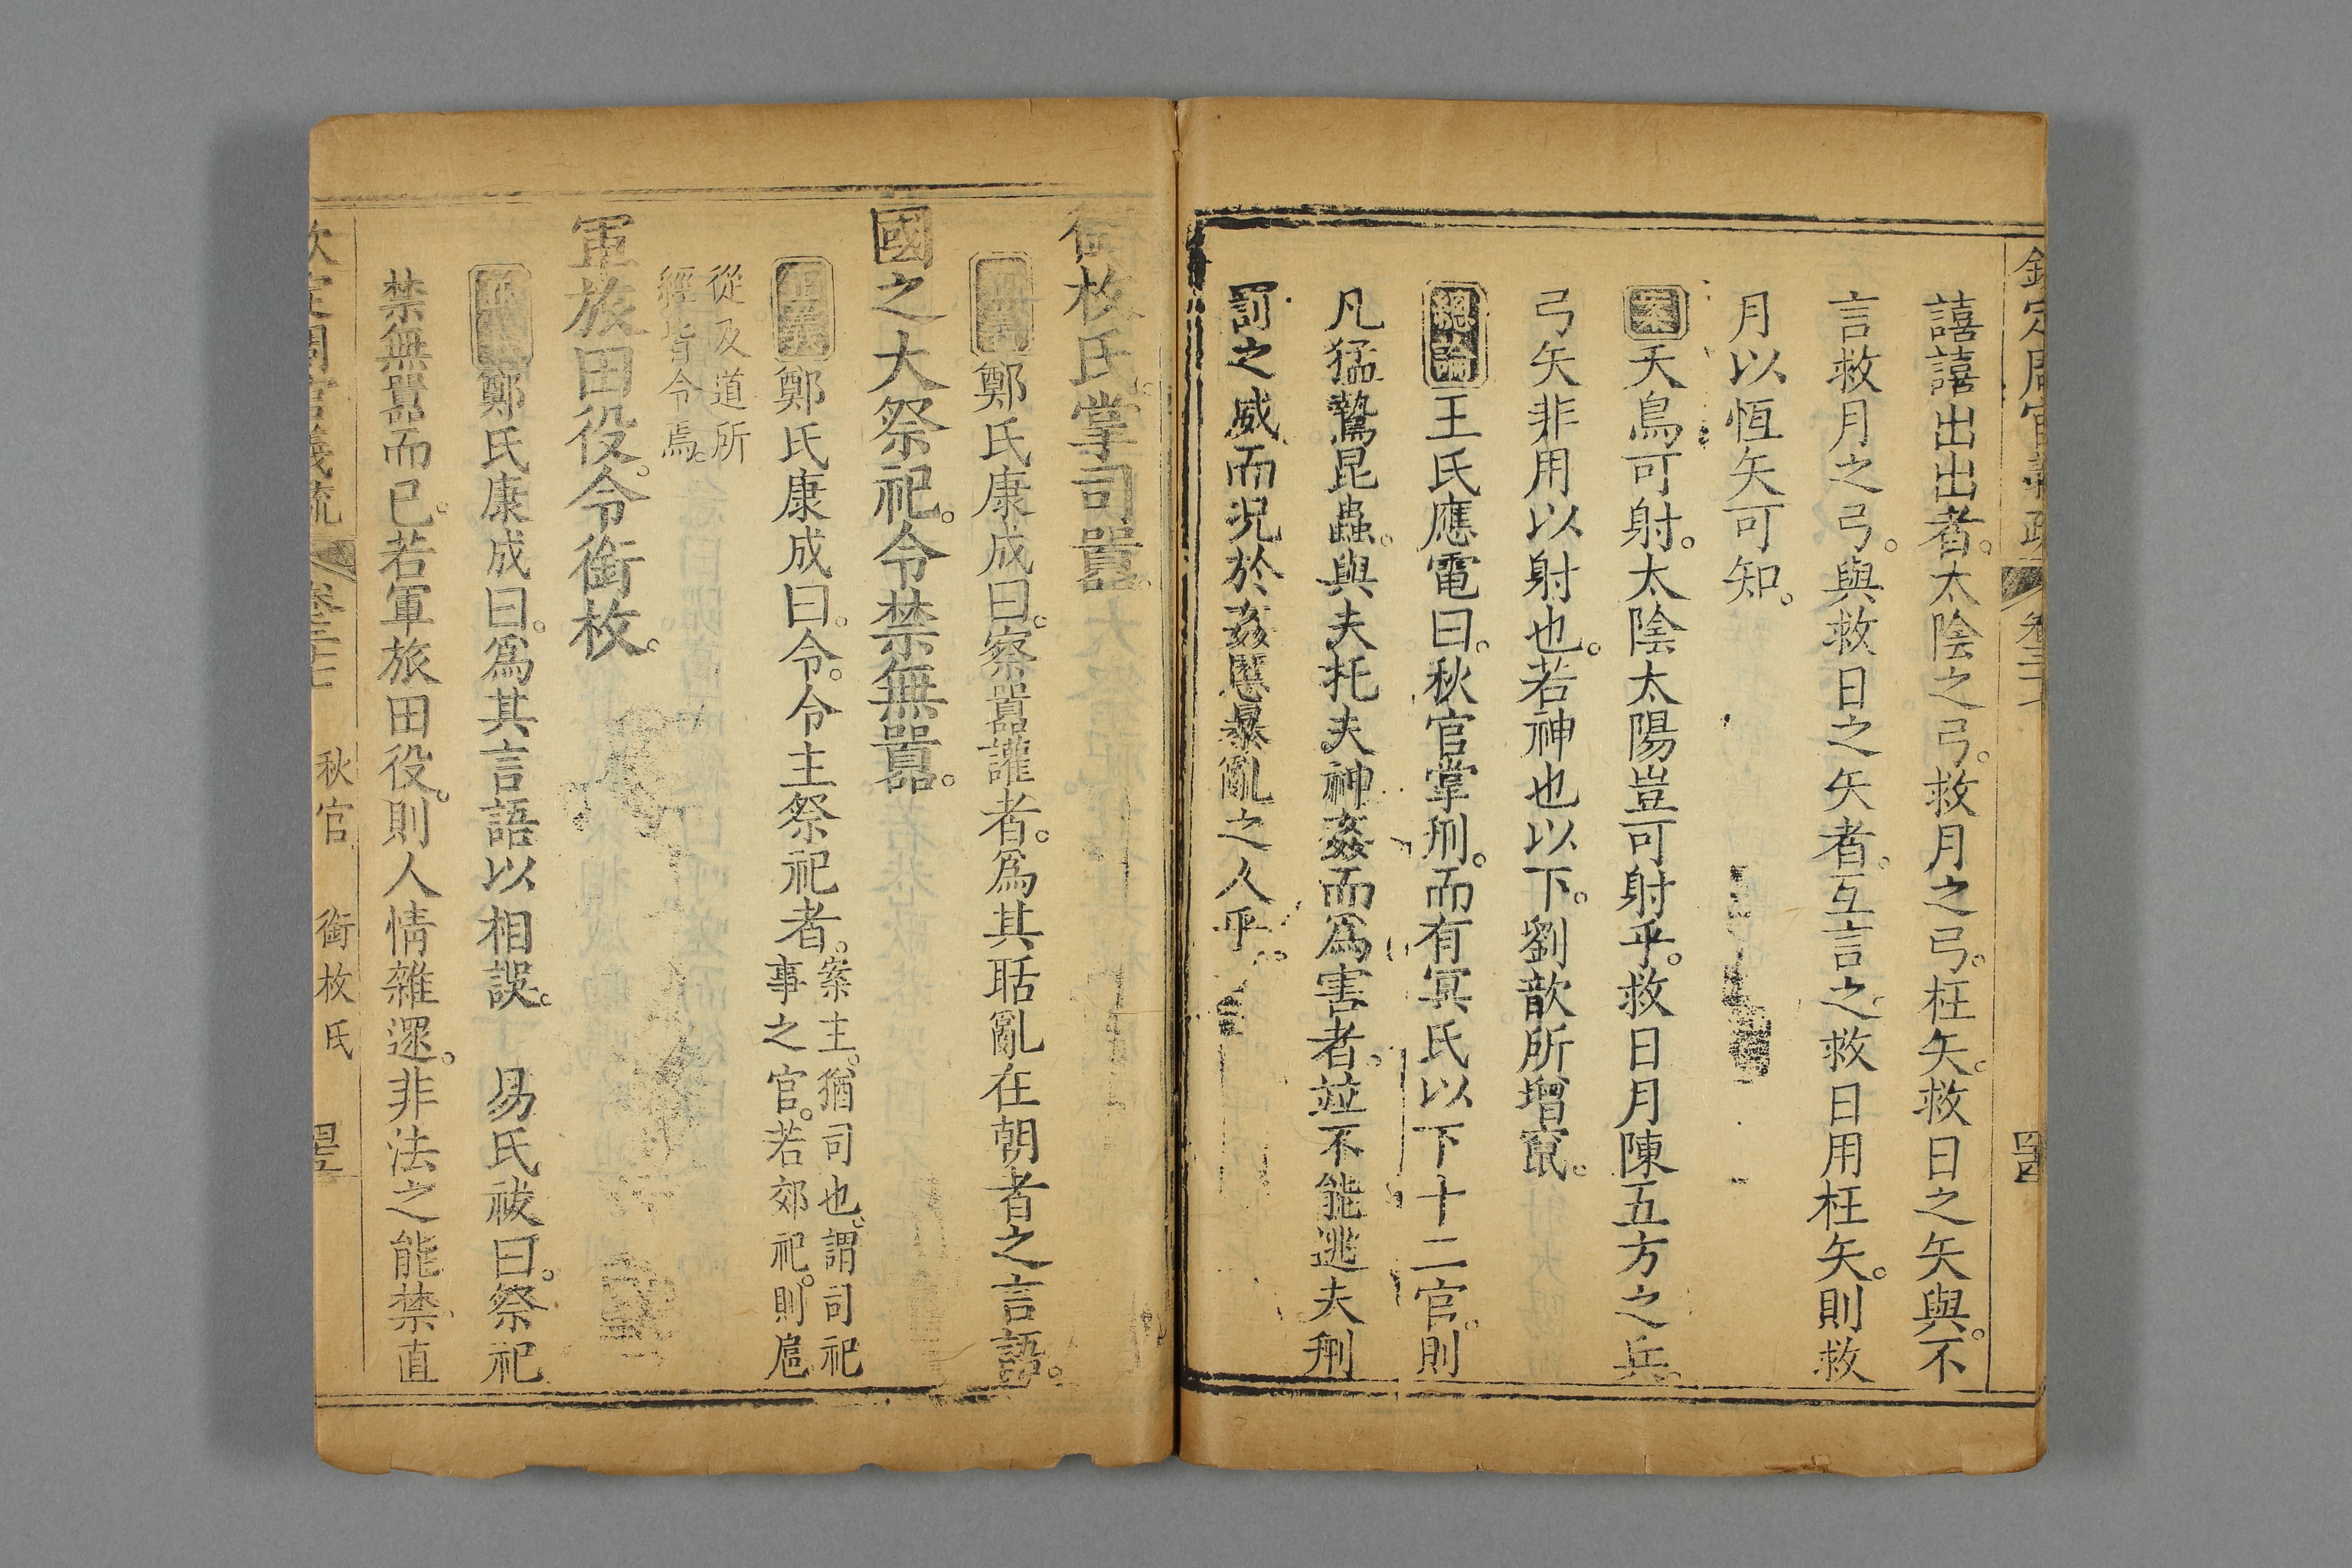 欽定周官義疏 卷三十七 四
譆譆出出者。太陰之弓。救月之弓。枉矢。救日之矢與。不
言救月之弓。與救日之矢者。互言之。救日用枉矢。則救
月以恆矢可知。
案夭鳥可射。太陰太陽豈可射乎。救日月陳五方之兵
弓矢非用以射也。若神也以下。劉歆所增竄。
總論王氏應電曰。秋官掌刑。而有冥氏以下十二官。則
凡猛鷙昆蟲。與夫托夫神姦而爲害者。竝不能逃夫刑
罰之威。而況於姦慝暴亂之人乎。
銜枚氏。掌司囂。
正義鄭氏康成曰。察囂讙者。爲其聒亂在朝者之言語。
國之大祭祀。令禁無囂。
正義鄭氏康成曰。令。令主祭祀者。案主。猶司也。謂司祀
事之官。若郊祀。則扈
從及道所
經皆令焉。
軍旅田役。令銜枚。
正義鄭氏康成曰。爲其言語以相誤。 易氏祓曰。祭祀
禁無囂而已。若軍旅田役。則人情雜遝。非法之能禁直
欽定周官義疏 卷三十七 秋官 銜枚氏 四五